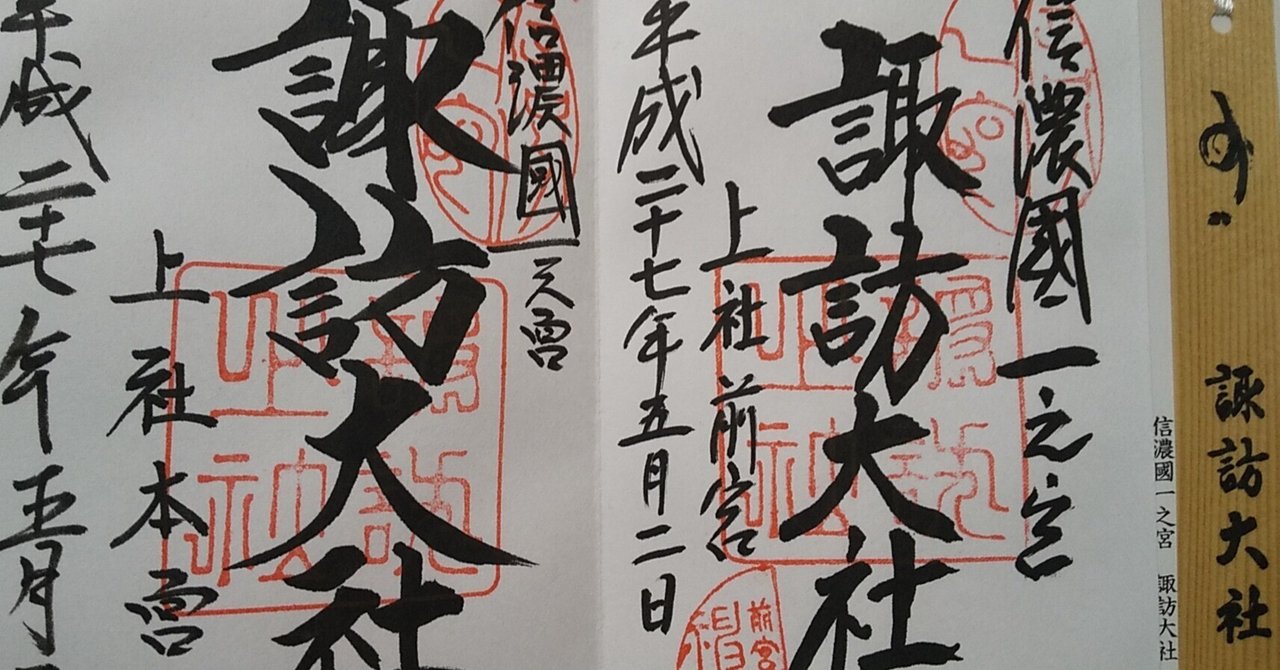 諏訪大社
信濃國一之宮 諏訪大社
信濃國一之宮
諏訪大社
上社前宮
平成二十七年五月二日
前宮
信濃國一之宮
諏訪大社
上社本宮
平成二十七年五月